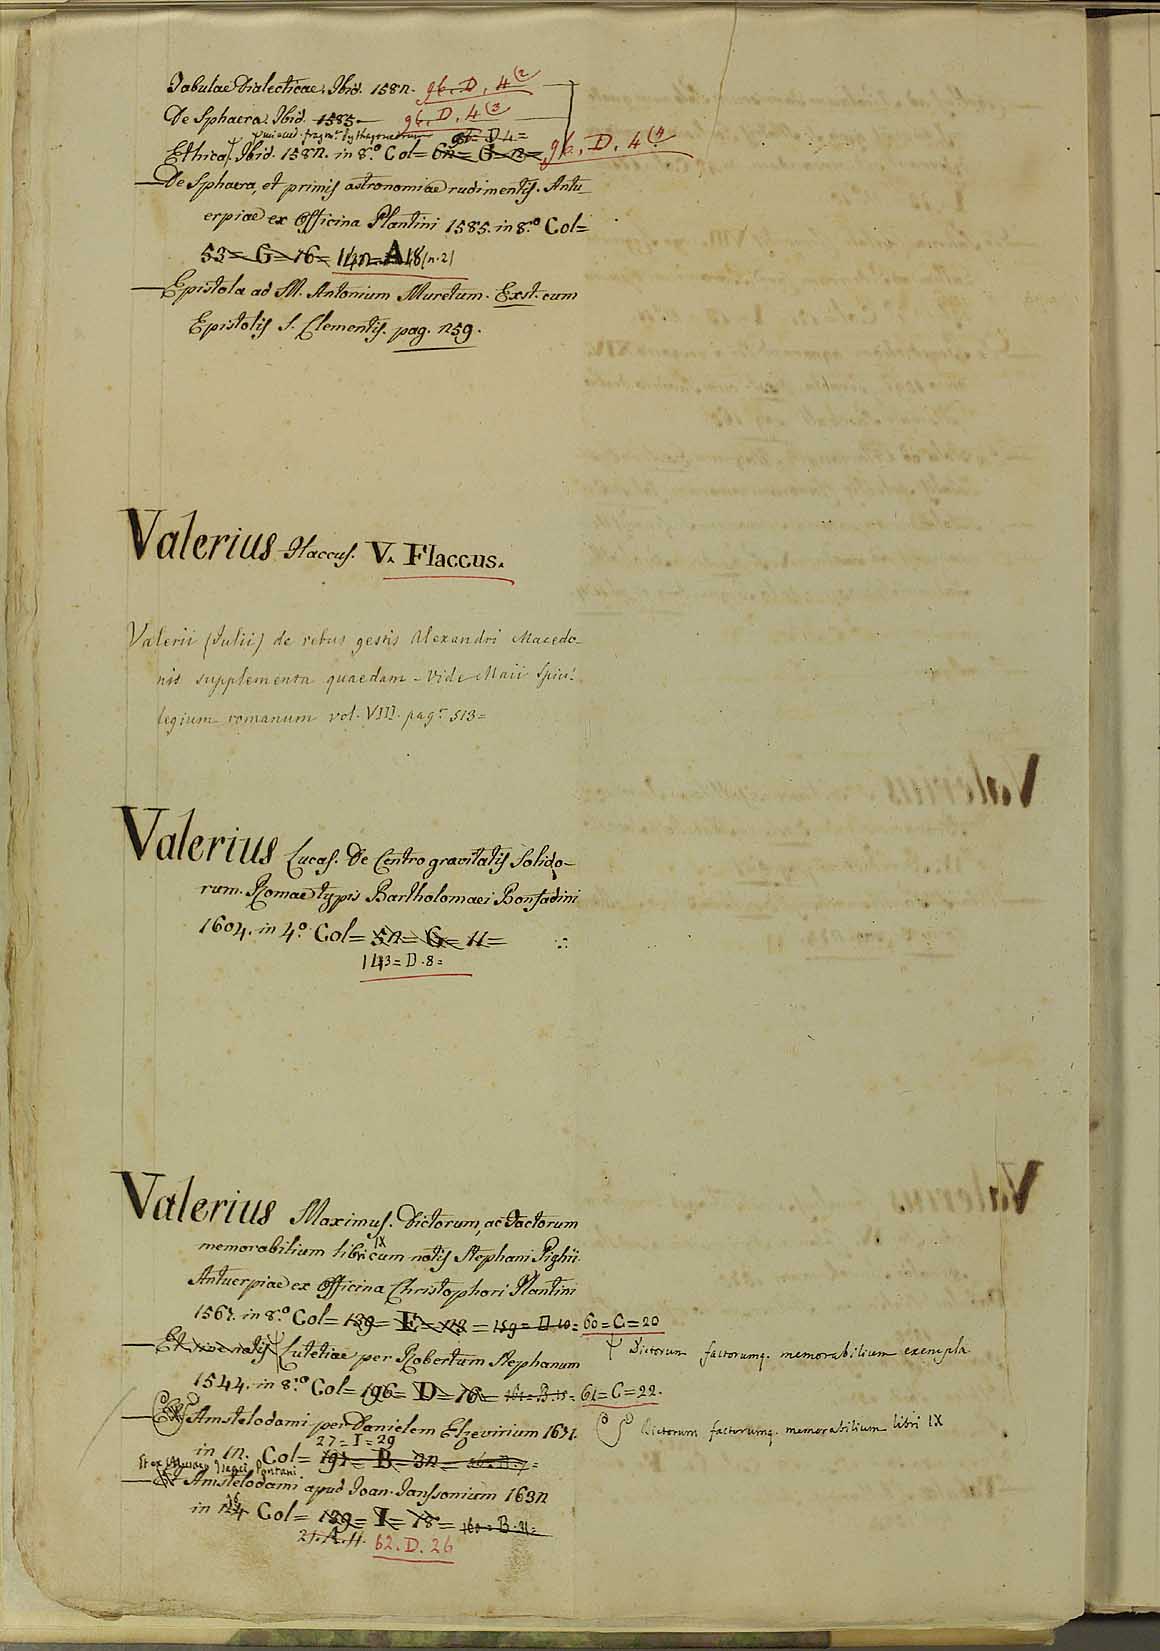 Tabulae Dialecticae. Ibid. 1582. 96. D, 4 (2
De Sphaera. Ibid. 1585. 96. D. 4 (3
Ethica. Ibid. 1582. in 8.º Col= 62= G= 2= 96. D. 4 (4
96= D 4=
De Sphaera, et primis astronomiae rudimentis. Antu
erpiae ex Officina Plantini 1585. in 8.º Col=
53= G= 16= 142= A 18 (n. 2)
Epistola ad M. Antonium Muretum. Exst. cum
Epistolis S. Clementis. pag. 259.
Valerius Flaccus. V. Flaccus.
Valerii (Julii) de rebus gestis Alexandri Macedo-
nis supplementa quaedam - Vide Maii Spici-
legium romanum vol. VIII. pag. 513=
Valerius Lucas. De Centro gravitatis Solido-
rum. Romae typis Bartholomaei Bonfadini
1604. in 4.º Col= 52= G= 11=
143= D. 8=
Valerius Maximus. Dictorum, ac Factorum
memorabilium libri IX cum notis Stephani Pighii.
Antuerpiae ex Officina Christophori Plantini
1567. in 8.º Col= 139= E= = 159= D 10= 60= C= 20
Et notis Lutetiae per Robertum Stephanum
Dictorum factorumq. memorabilium exempla
1544. in 8.º Col= 196= D= 16= 161= B. 15= 61= C= 22.
Amstelodami per Danielem Elzevirium 1671.
Dictorum factorumq. memorabilium libri IX
27= I= 29
in 12. Col= 191= B= 32=
Amstelodami apud Joan. Janssonium 1632
in 24 Col= 139= I= 18= 160= B. 31=
21. A. 11. 62. D. 26